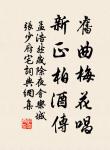 舊曲梅花唱
新正柏酒傳
孟浩然歲除夜會樂城
張少府宅詞典網集